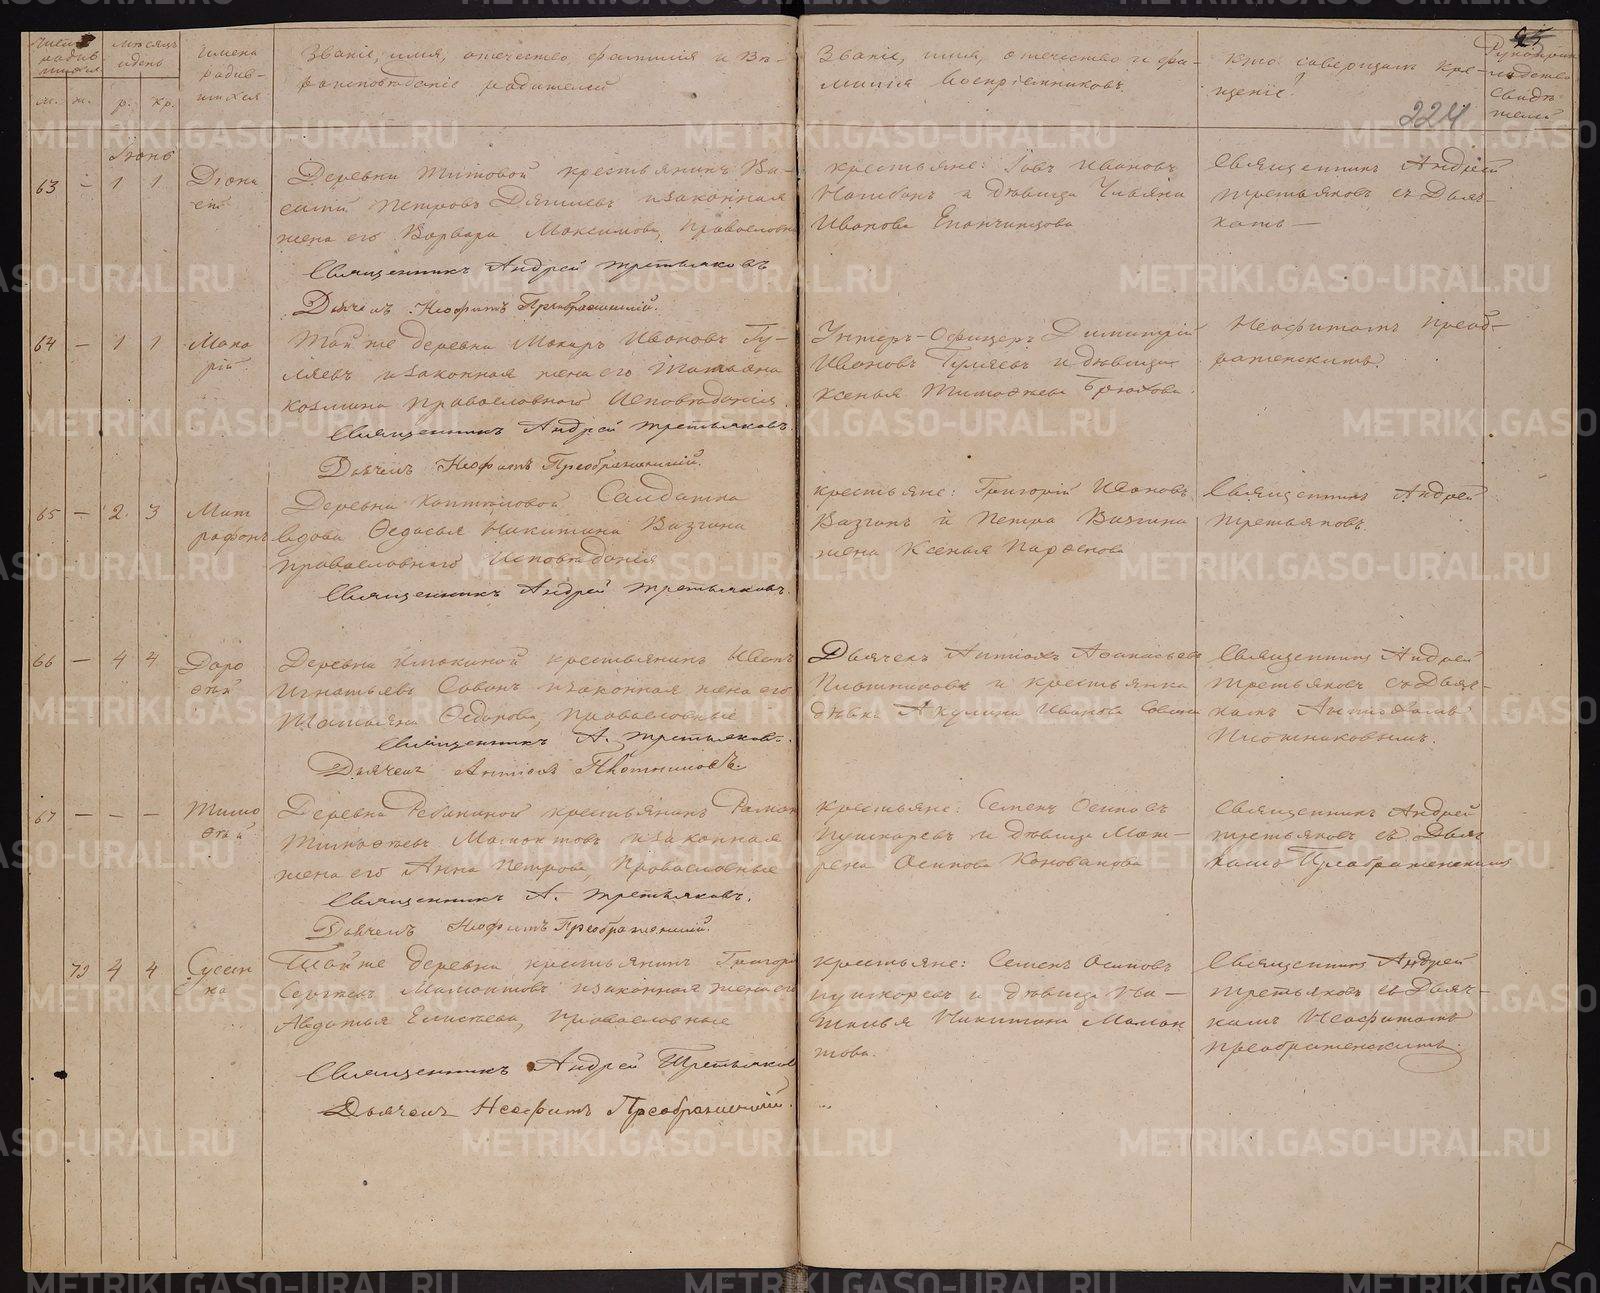 Число родившихся
Мѣсяцъ и день
Имена родившихся
Званіе, имя, отечество, фамилія и Вѣроисповѣданіе родителей
Званіе, имя, отечество и фамилія воспріемниковъ.
Кто совершалъ крещеніе.
Рукоприкладство Свидѣтелей
м. ж. р. кр.
224
Іюнь
63 — 1 1
Деревни Титовой крестьянинъ Ва-
силій Петровъ и законная
жена его Варвара Максимова, православн
Священникъ Андрей Третьяковъ
Дьячекъ Неофитъ Преображенскій.
крестьяне: Іовъ Ивановъ
и дѣвица Ульяна
Иванова Епанчинцова
Священникъ Андрей
Третьяковъ съ Дьяч-
комъ —
64 — 1 1
Мака
рій
Той же деревни Макаръ Ивановъ Гу-
ляевъ и законная жена его Татьяна
Козмина православнаго исповѣданія.
Священникъ Андрей Третьяковъ.
Дьячекъ Неофитъ Преображенскій.
Унтеръ-Офицеръ Димитрій
Ивановъ Гуляевъ и дѣвица
Ксенья Тимофѣева Брюхова
Неофитомъ Преоб-
раженскимъ.
65 — 2 3
Мит
рофонъ
Деревни Солдатка
вдова Ѳедосья Никитина Вязгина
православнаго исповѣданія
Священникъ Андрей Третьяковъ.
крестьяне: Григорій Ивановъ
Вязгинъ и Петра Вязгина
жена Ксенья Парѳенова
Священникъ Андрей
Третьяковъ.
66 — 4 4
Доро
ѳей
Деревни крестьянинъ Иванъ
Игнатьевъ Совинъ и законная жена его
Татьяна Ѳедорова, православные
Священникъ А. Третьяковъ.
Дьячекъ Антіохъ Плотниковъ.
Дьячекъ Антіохъ Аѳанасьевъ
Плотниковъ и крестьянка
дѣвка Акулина Иванова Совина
Священникъ Андрей
Третьяковъ съ Дьяч-
комъ Антіохомъ
Плотниковымъ.
67 — — —
Тимо
ѳей
Деревни крестьянинъ Романъ
Тимофѣевъ Мамонтовъ и законная
жена его Анна Петрова, православные
Священникъ А. Третьяковъ.
Дьячекъ Неофитъ Преображенскій.
крестьяне: Семенъ Осиповъ
Пушкаревъ и дѣвица Мат-
рена Осипова Коновалова
Священникъ Андрей
Третьяковъ съ Дьяч
комъ Преображенскимъ
79 4 4
Сусан
на
Той же деревни крестьянинъ Григорій
Сергѣевъ Мамонтовъ и законная жена его
Авдотья Елисѣева, православные
Священникъ Андрей Третьяковъ
Дьячекъ Неофитъ Преображенскій.
крестьяне: Семенъ Осиповъ
Пушкаревъ и дѣвица На-
талья Никитина Мамон
това.
Священникъ Андрей
Третьяковъ съ Дьяч-
комъ Неофитомъ
Преображенскимъ.
METRIKI.GASO-URAL.RU